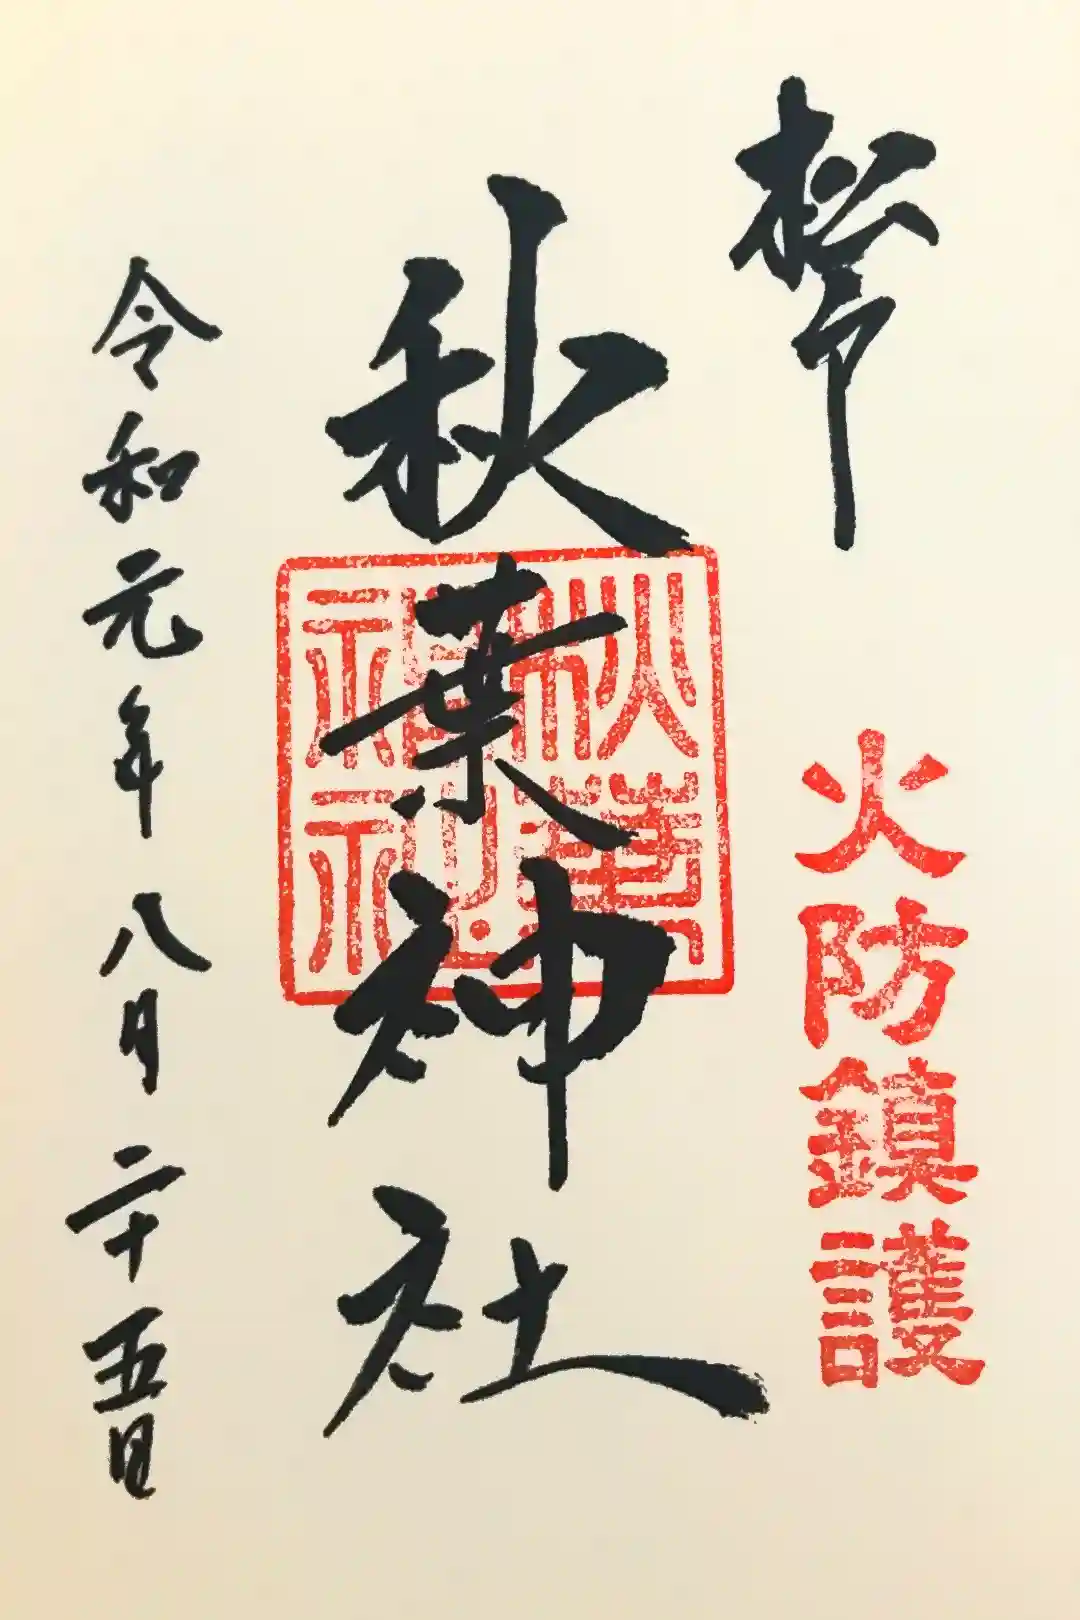 松
火防鎮護
秋葉神社
秋葉
神社
令和元年八月二十五日